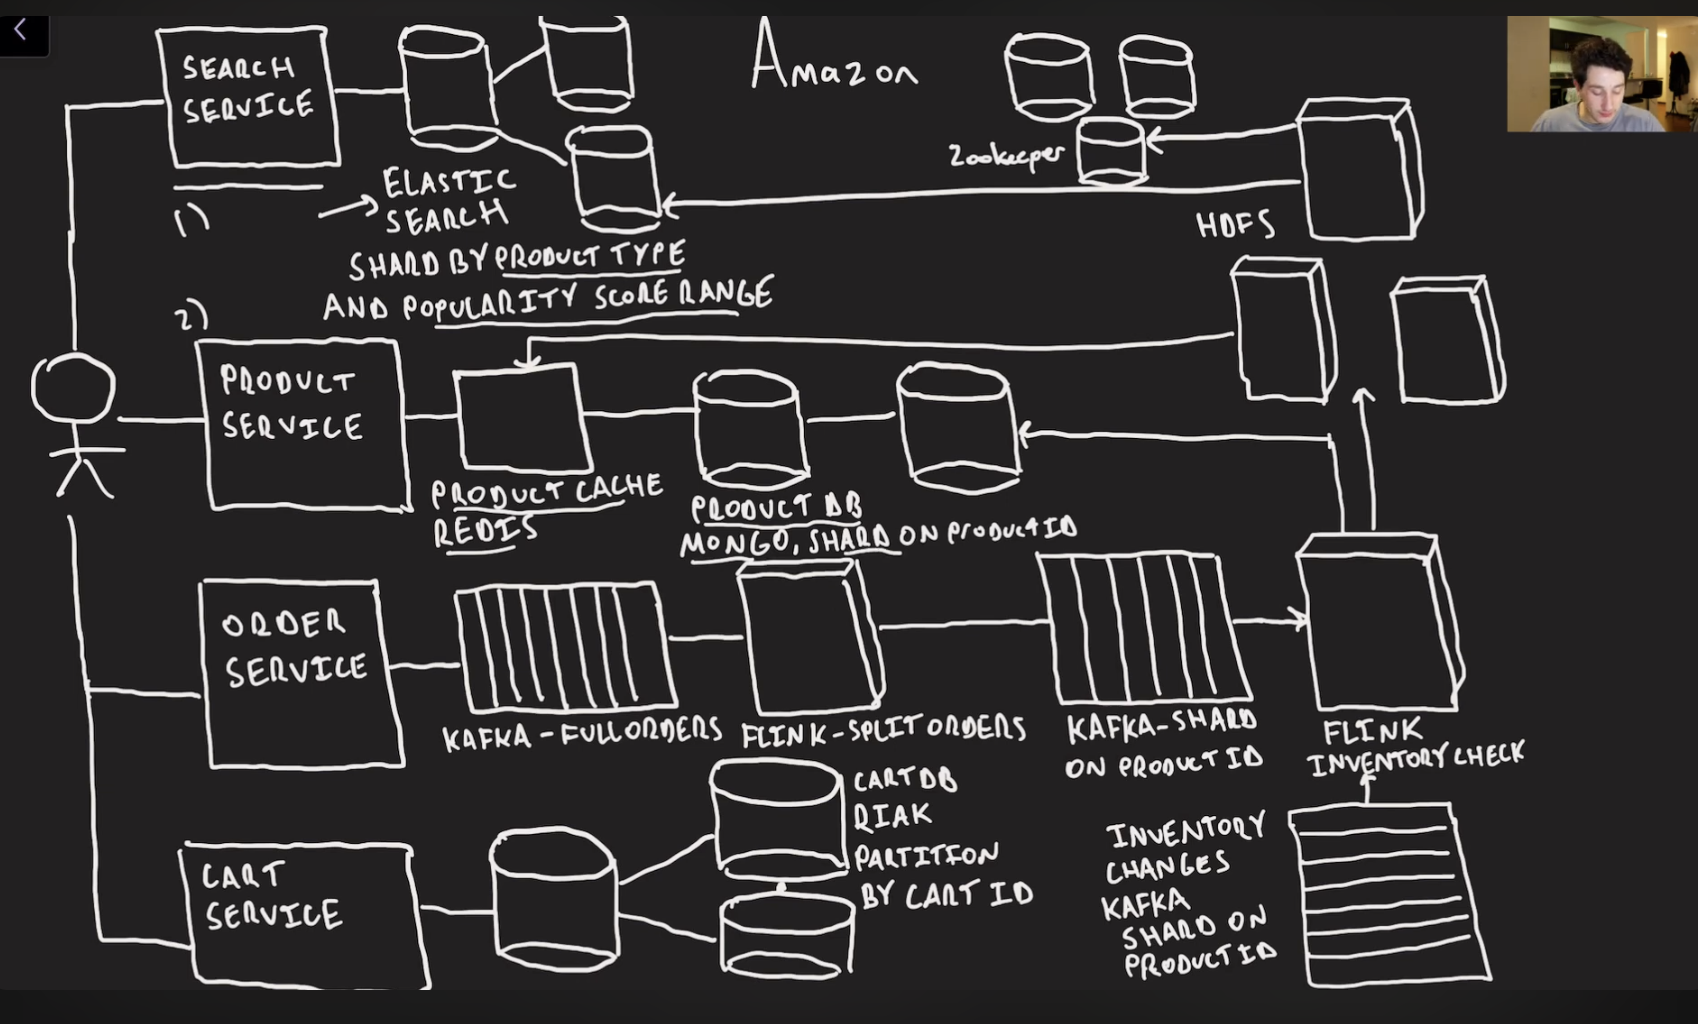 Amazon
SEARCH
SERVICE
1)
ELASTIC
SEARCH
SHARD BY PRODUCT TYPE
AND POPULARITY SCORE RANGE
Zookeeper
HDFS
2)
PRODUCT
SERVICE
PRODUCT CACHE
REDIS
PRODUCT DB
MONGO, SHARD ON PRODUCT ID
ORDER
SERVICE
KAFKA - FULL ORDERS
FLINK - SPLIT ORDERS
KAFKA - SHARD
ON PRODUCT ID
FLINK
INVENTORY CHECK
CART
SERVICE
CART DB
RIAK
PARTITION
BY CART ID
INVENTORY
CHANGES
KAFKA
SHARD ON
PRODUCT ID